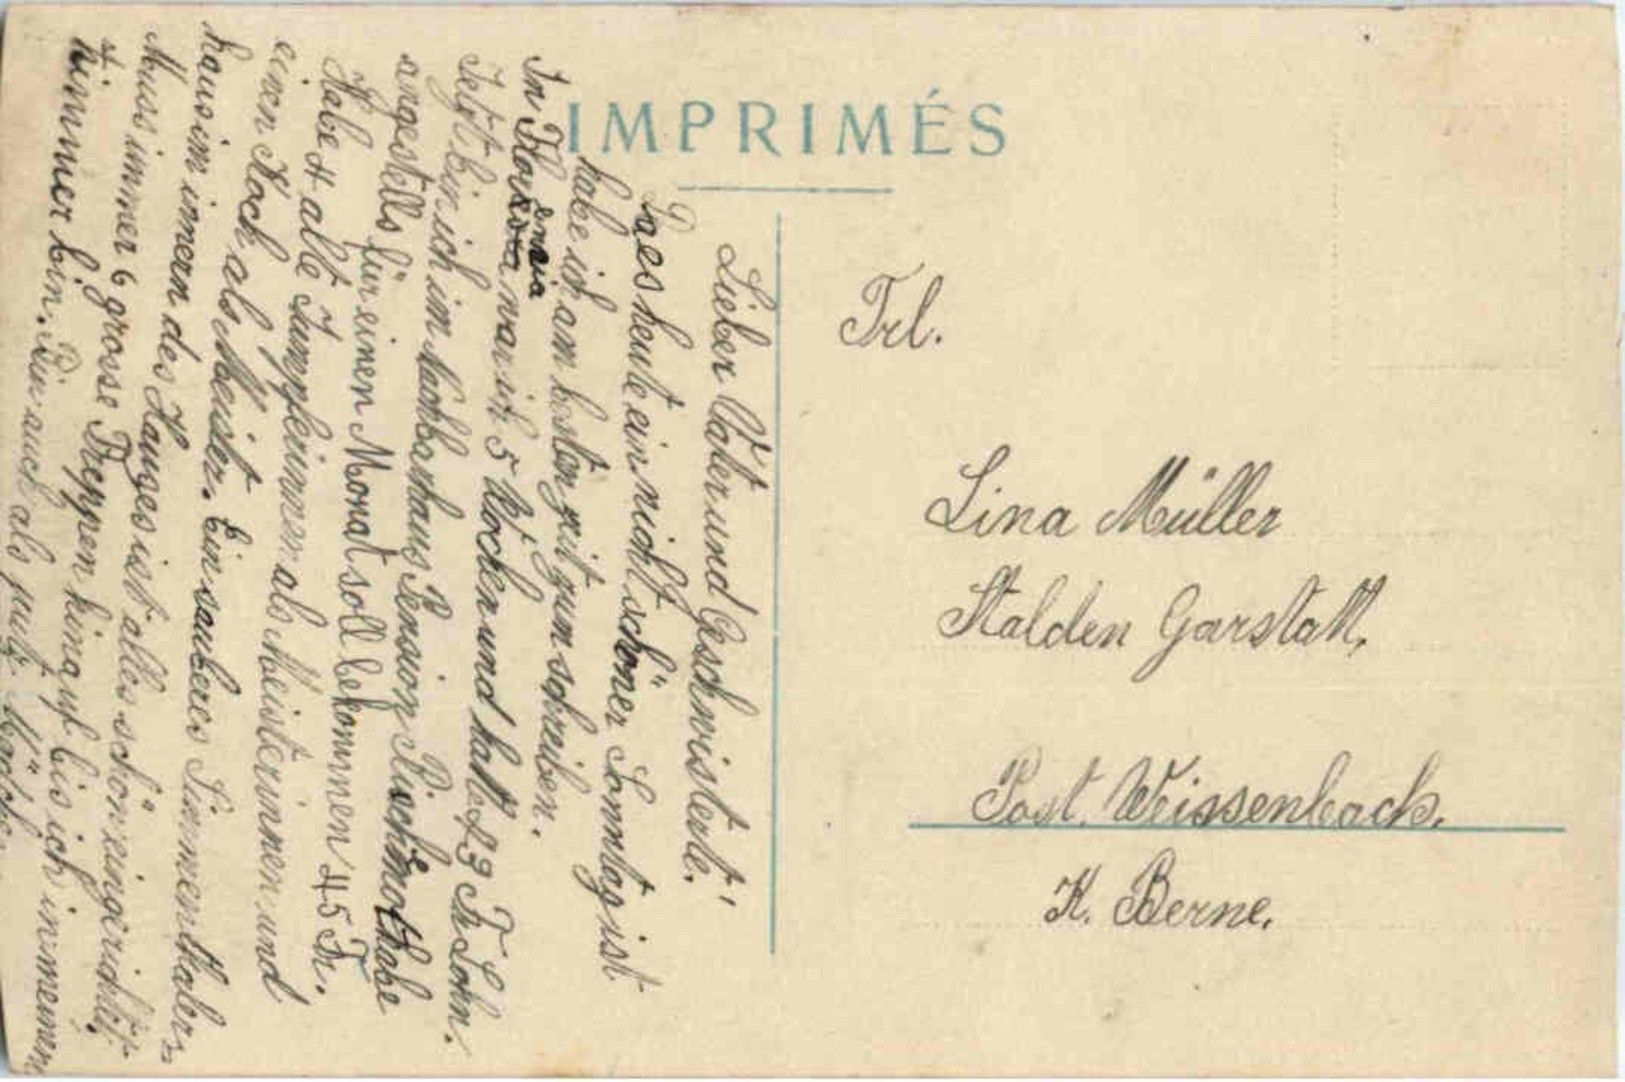 IMPRIMÉS
Lieber Vater und Geschwisterte!
Da es heute ein nicht schöner Sonntag ist
habe ich am besten zeit zum schreiben.
In Floria war ich 5 Wochen und hatte 83 Fr Lohn.
Jetzt bin ich im Nachbarhaus Pension
angestellt für einen Monat soll bekommen 45 Fr.
Habe 4 alte Jumpferinnen als Meisterinnen und
einen Koch als Meister. Ein sauberes Simmenthaler-
haus im innern des Hauses ist alles schön eingerichtet.
Muss immer 6 grosse Treppen hinauf bis ich in meinem
Zimmer bin. Bin auch als
Frl.
Lina Müller
Stalden Garstatt,
Post. Weissenbach.
K. Berne.